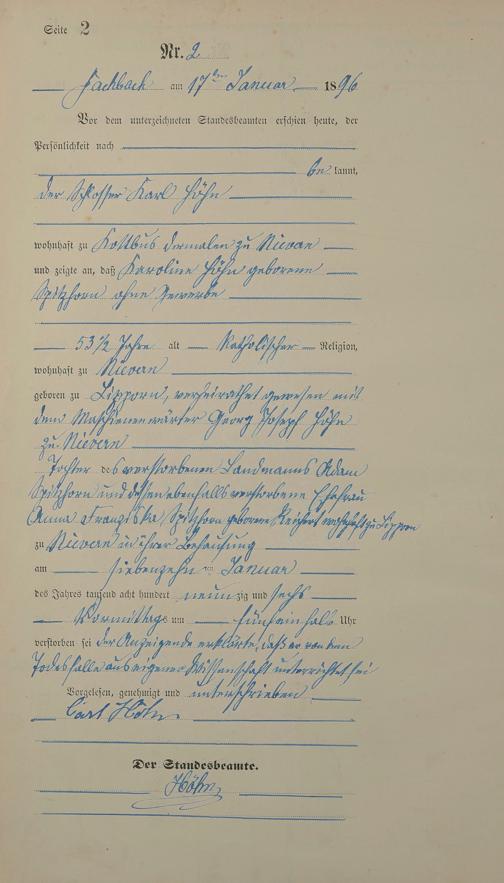 Seite 2
Nr. 2
Fachbach am 17ten Januar 1896
Vor dem unterzeichneten Standesbeamten erschien heute, der
Persönlichkeit nach
be kannt,
der Schlosser Karl Höhn
wohnhaft zu Kottbus dermalen zu Nievern
und zeigte an, daß Karoline Höhn geborene
Spitzhorn ohne Gewerbe
53 1/2 Jahre alt Katholischer Religion,
wohnhaft zu Nievern
geboren zu Lipporn, verheirathet gewesen mit
dem Maschienenwärter Georg Joseph Höhn
zu Nievern
Tochter des verstorbenen Landmanns Adam
Spitzhorn und dessen ebenfalls verstorbene Ehefrau
Anna Franziska Spitzhorn geborene Reichert wohnhaft zu Lipporn
zu Nievern in ihrer Behausung
am siebenzehnten Januar
des Jahres tausend acht hundert neunzig und sechs
Vormittags um fünfeinhalb Uhr
verstorben sei der Anzeigende erklärte, daß er von dem
Todesfalle aus eigener Wissenschaft unterrichtet sei
Vorgelesen, genehmigt und unterschrieben
Carl Höhn
Der Standesbeamte.
Höhn